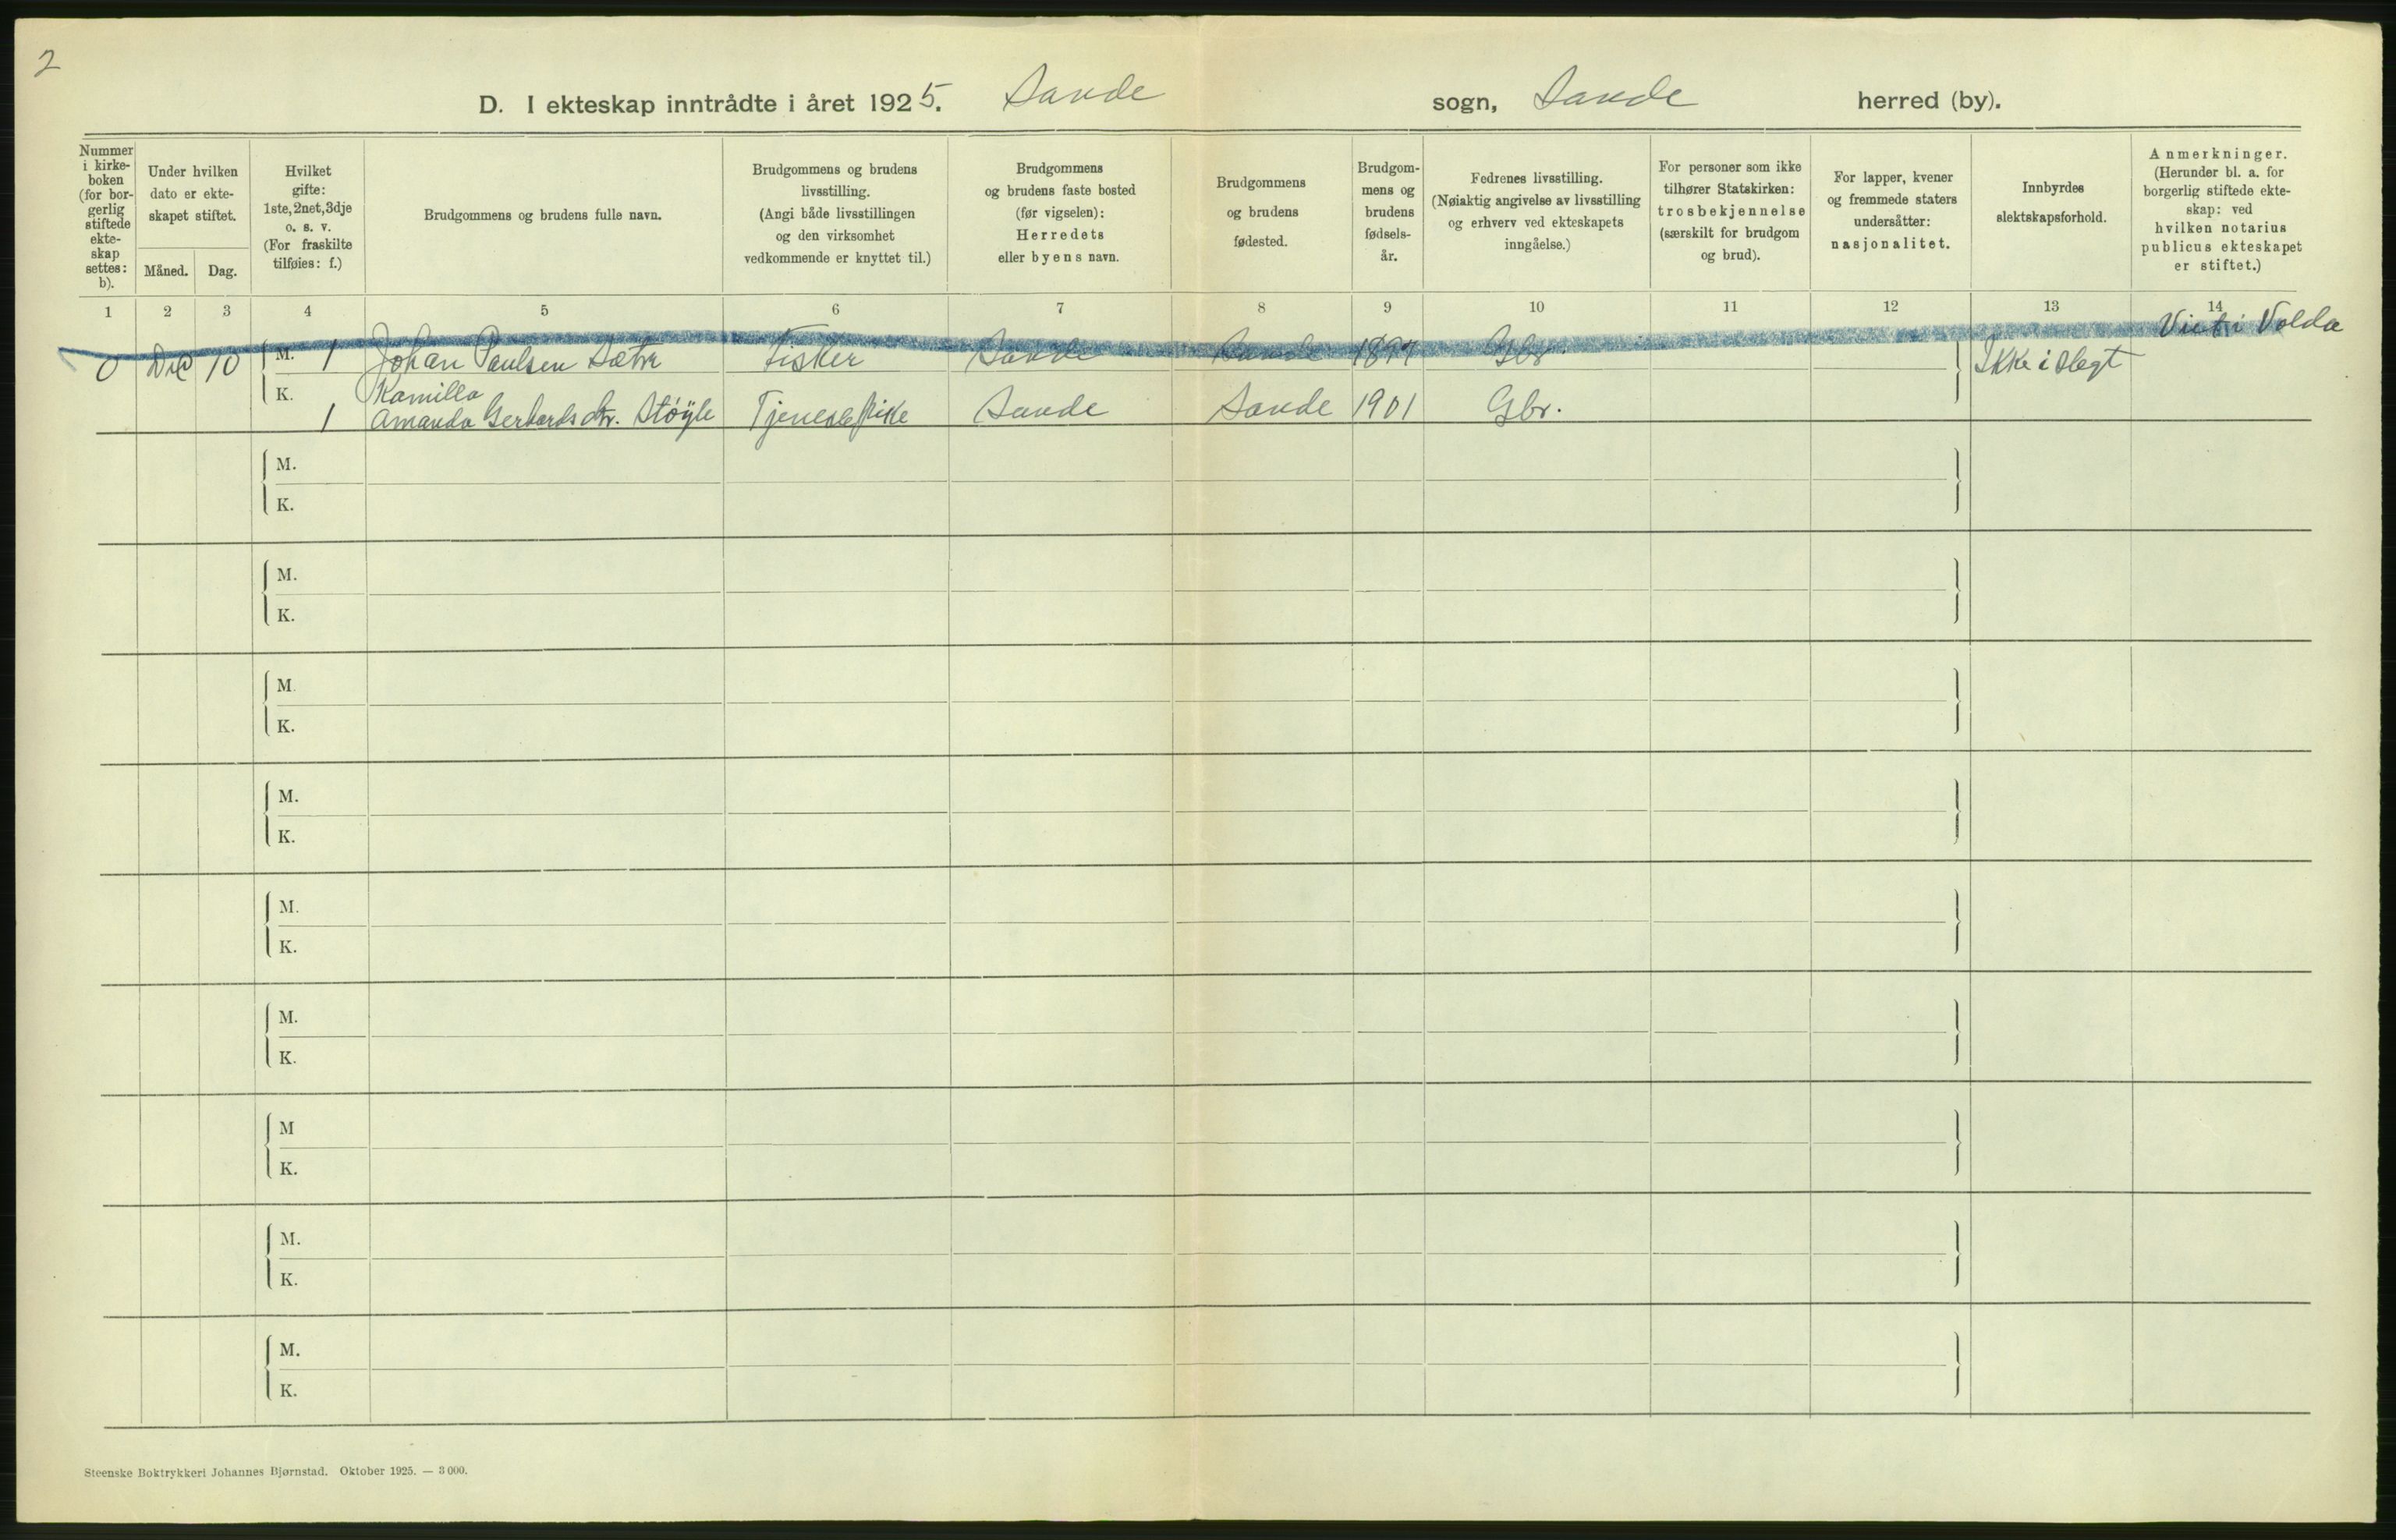 2
D. I ekteskap inntrådte i året 1925. Sande sogn, Sande herred (by).
Nummer i kirke-boken (for bor-gerlig stiftede ekte-skap settes: b).
Under hvilken dato er ekte-skapet stiftet.
Måned. Dag.
Hvilket gifte: 1ste, 2net, 3dje o. s. v. (For fraskilte tilføies: f.)
Brudgommens og brudens fulle navn.
Brudgommens og brudens livsstilling. (Angi både livsstillingen og den virksomhet vedkommende er knyttet til.)
Brudgommens og brudens faste bosted (før vigselen): Herredets eller byens navn.
Brudgommens og brudens fødested.
Brudgom-mens og brudens fødsels-år.
Fedrenes livsstilling. (Nøiaktig angivelse av livsstilling og erhverv ved ekteskapets inngåelse.)
For personer som ikke tilhører Statskirken: trosbekjennelse (særskilt for brudgom og brud).
For lapper, kvener og fremmede staters undersåtter: nasjonalitet.
Innbyrdes slektskapsforhold.
Anmerkninger. (Herunder bl. a. for borgerlig stiftede ekte-skap: ved hvilken notarius publicus ekteskapet er stiftet.)
1 2 3 4 5 6 7 8 9 10 11 12 13 14
0 10 M. 1 Johan Paulsen Sætre Fisker Sande Sande 1897 Gbr. Ikke i slegt Viet i Volda
K. Kamilla
1 Amanda Gerhardsdtr. Støyle Tjenestepike Sande Sande 1901 Gbr.
M.
K.
M.
K.
M.
K.
M.
K.
M.
K.
M.
K.
M
K.
M.
K.
M.
K.
Steenske Boktrykkeri Johannes Bjørnstad. Oktober 1925. — 3 000.